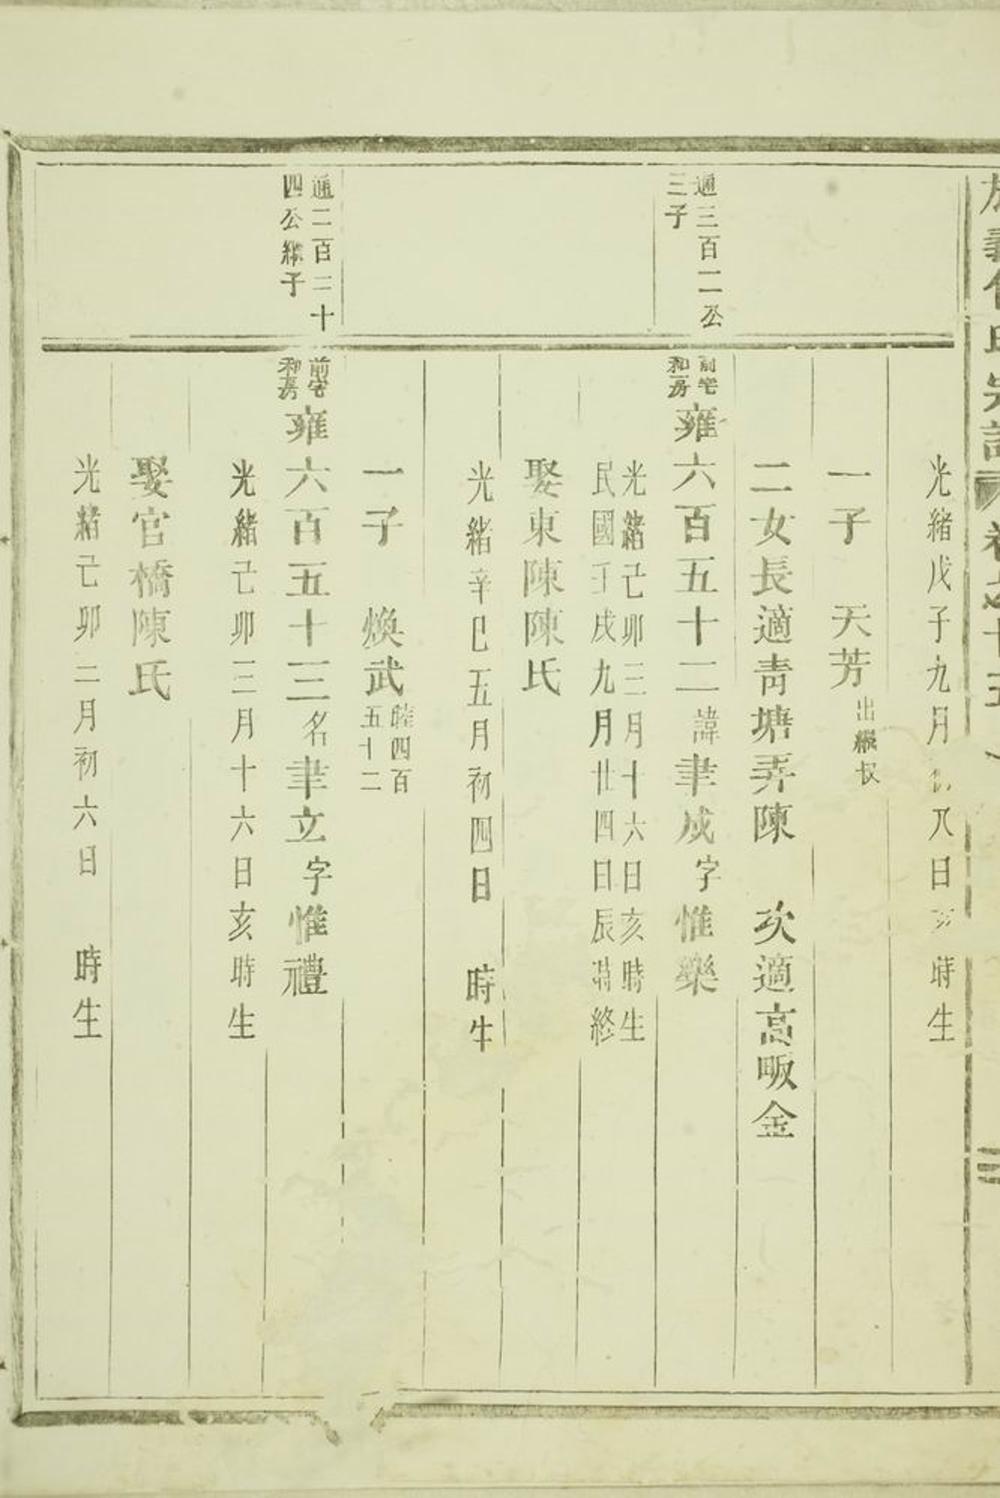 光緒戊子九月初八日亥時生
一子 天芳 出繼叔
二女長適青塘弄陳 次適高畈金
通三百二公
三子
前宅
和房
雍六百五十二諱聿成字惟樂
光緒己卯三月十六日亥時生
民國壬戌九月廿四日辰時終
娶東陳陳氏
光緒辛巳五月初四日 時生
一子 煥武 睦四百
五十二
通二百二十
四公繼子
前宅
和房
雍六百五十三名聿立字惟禮
光緒己卯三月十六日亥時生
娶官橋陳氏
光緒己卯二月初六日 時生